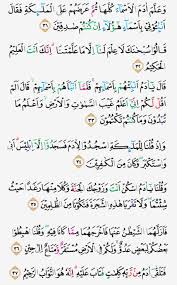 وَعَلَّمَ ءَادَمَ ٱلْأَسْمَآءَ كُلَّهَا ثُمَّ عَرَضَهُمْ عَلَى ٱلْمَلَٰٓئِكَةِ فَقَالَ
أَنۢبِـُٔونِى بِأَسْمَآءِ هَٰٓؤُلَآءِ إِن كُنتُمْ صَٰدِقِينَ ٣١
قَالُوا۟ سُبْحَٰنَكَ لَا عِلْمَ لَنَآ إِلَّا مَا عَلَّمْتَنَآ إِنَّكَ أَنتَ ٱلْعَلِيمُ
ٱلْحَكِيمُ ٣٢
قَالَ يَٰٓـَٔادَمُ أَنۢبِئْهُم بِأَسْمَآئِهِمْ فَلَمَّآ أَنۢبَأَهُم بِأَسْمَآئِهِمْ قَالَ أَلَمْ
أَقُل لَّكُمْ إِنِّىٓ أَعْلَمُ غَيْبَ ٱلسَّمَٰوَٰتِ وَٱلْأَرْضِ وَأَعْلَمُ مَا
تُبْدُونَ وَمَا كُنتُمْ تَكْتُمُونَ ٣٣
وَإِذْ قُلْنَا لِلْمَلَٰٓئِكَةِ ٱسْجُدُوا۟ لِـَٔادَمَ فَسَجَدُوٓا۟ إِلَّآ إِبْلِيسَ أَبَىٰ
وَٱسْتَكْبَرَ وَكَانَ مِنَ ٱلْكَٰفِرِينَ ٣٤
وَقُلْنَا يَٰٓـَٔادَمُ ٱسْكُنْ أَنتَ وَزَوْجُكَ ٱلْجَنَّةَ وَكُلَا مِنْهَا رَغَدًا حَيْثُ
شِئْتُمَا وَلَا تَقْرَبَا هَٰذِهِ ٱلشَّجَرَةَ فَتَكُونَا مِنَ ٱلظَّٰلِمِينَ ٣٥
فَأَزَلَّهُمَا ٱلشَّيْطَٰنُ عَنْهَا فَأَخْرَجَهُمَا مِمَّا كَانَا فِيهِ وَقُلْنَا ٱهْبِطُوا۟
بَعْضُكُمْ لِبَعْضٍ عَدُوٌّ وَلَكُمْ فِى ٱلْأَرْضِ مُسْتَقَرٌّ وَمَتَٰعٌ إِلَىٰ حِينٍ ٣٦
فَتَلَقَّىٰٓ ءَادَمُ مِن رَّبِّهِۦ كَلِمَٰتٍ فَتَابَ عَلَيْهِ إِنَّهُۥ هُوَ ٱلتَّوَّابُ ٱلرَّحِيمُ ٣٧